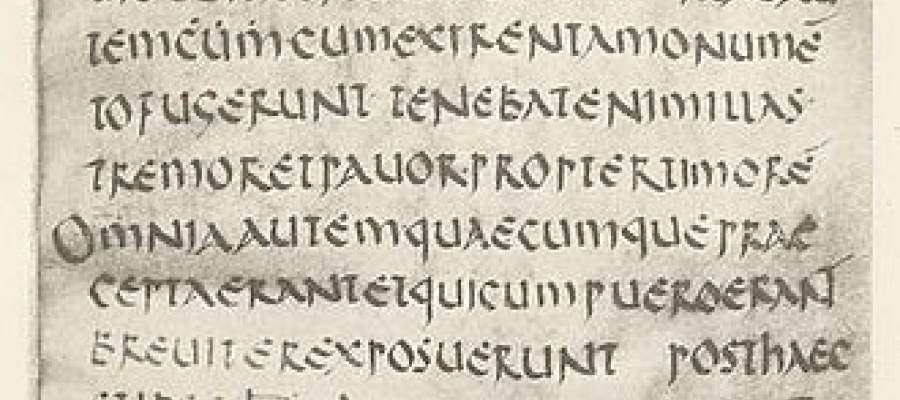 TEMCUMCUMEXIRENTAMONUMĒ
TOFUGERUNT TENEBATENIMILLAS·
TREMORETPAUORPROPTERTIMORĒ
OMNIAAUTEMQUAECUMQUEPRAE
CEPTAERANTETQUICUMPUEROERANT
BREUITEREXPOSUERUNT POSTHAEC